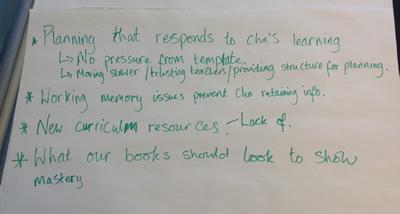 * Planning that responds to chn's learning
↳ No pressure from template.
↳ Moving slower / trusting teachers / providing structure for planning.
* Working memory issues prevent chn retaining info.
* New curriculum resources - Lack of.
* What our books should look to show
mastery